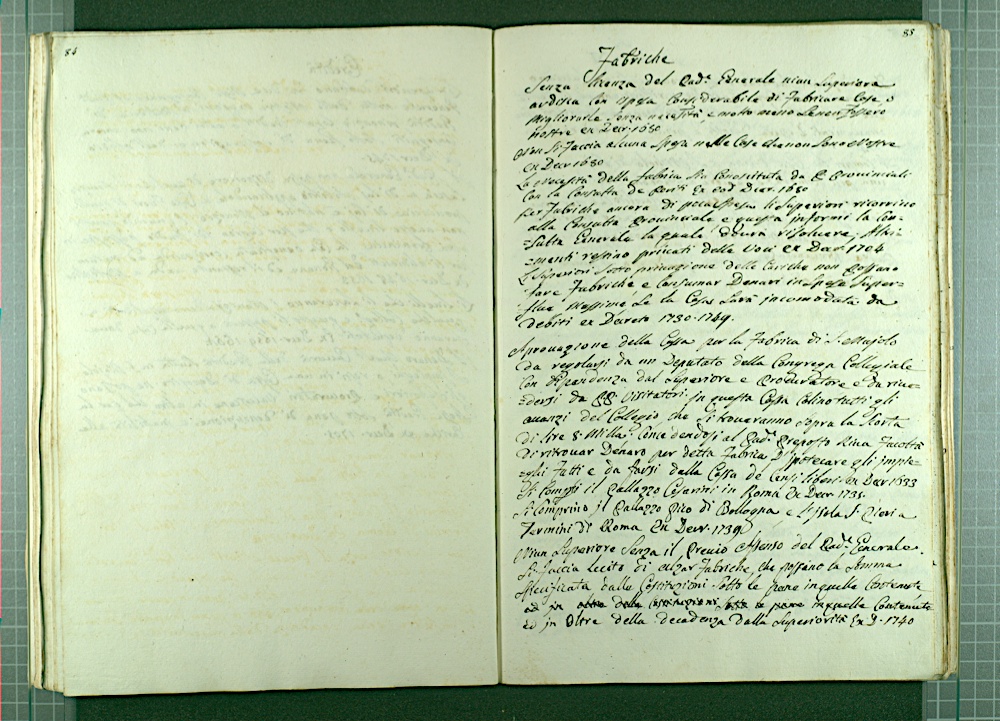 84
85
Fabriche
Senza licenza del Pad.e Generale niun Superiore
ardisca con spesa considerabile di Fabricare Case o
Migliorarle senza necessità e molto meno se non fossero
nostre ex Decr. 1650
Non si faccia alcuna spesa nelle Case che non sono Nostre
ex Decr 1680
La Necessità della Fabrica sia conosciuta da P Provinciali
con la Consulta de Periti ex eod Decr. 1680
Per Fabriche ancora di poca spesa li Superiori ricorrino
alla Consulta Provinciale e questa informi la Con=
=sulta Generale la quale dovrà risolvere. Altri=
=menti restino privati della Voce ex Decr. 1704
Li Superiori sotto privazione delle Cariche non possano
fare Fabriche e consumar Denari in spese super=
=flue Massime se la Casa sarà incomodata da
Debiti ex Decreto 1730. 1749.
Aprovazione della Cassa per la Fabrica di S. Majolo
da regolarsi da un Deputato della Congrega Collegiale
con dipendenza dal Superiore e Procuratore e da rive=
=dersi da PP. Visitatori in questa Cassa colino tutti gli
avanzi del Collegio che si troveranno sopra la Scorta
di lire 8 Milla. Concedendosi al Pad.e Preposto
di ritrovar Denaro per detta Fabrica d'ipotecare gli impie=
=ghi fatti e da farsi dalla Cassa de Censi liberi ex Decr 1633
Si compri il Pallazzo Cesarini in Roma ex Decr 1735.
Si comprino il Pallazzo Pico di Bollogna e l'Isola S.
Termini di Roma ex Decr. 1739
Niun Superiore senza il previo assenso del Pad.e Generale
si faccia lecito di alzar Fabriche, che passano la somma
specificata dalle Costituzioni sotto le pene in quelle Contenute
ed in oltre delle Costituzioni sotto le pene in quelle Contenute
ed in oltre della decadenza dalla Superiorità Ex D. 1740